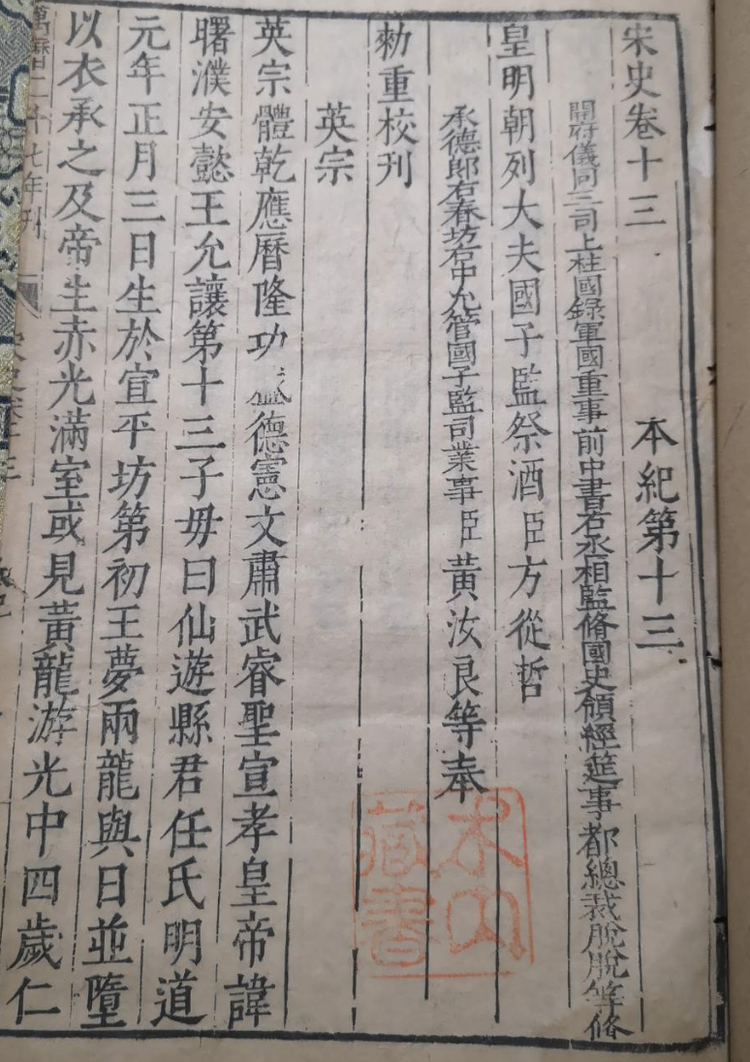 宋史卷十三 本紀第十三
開府儀同三司上柱國錄軍國重事前中書右丞相監脩國史領經筵事都總裁脫脫等脩
皇明朝列大夫國子監祭酒臣方從哲
承德郎右春坊右中允管國子監司業事臣黃汝良等奉
勑重校刊
英宗
英宗體乾應曆隆功盛德憲文肅武睿聖宣孝皇帝諱
曙濮安懿王允讓第十三子毋曰仙遊縣君任氏明道
元年正月三日生於宣平坊第初王夢兩龍與日並墮
以衣承之及帝生赤光滿室或見黃龍游光中四歲仁
萬曆二十七年刊
宋史卷十三
藏書